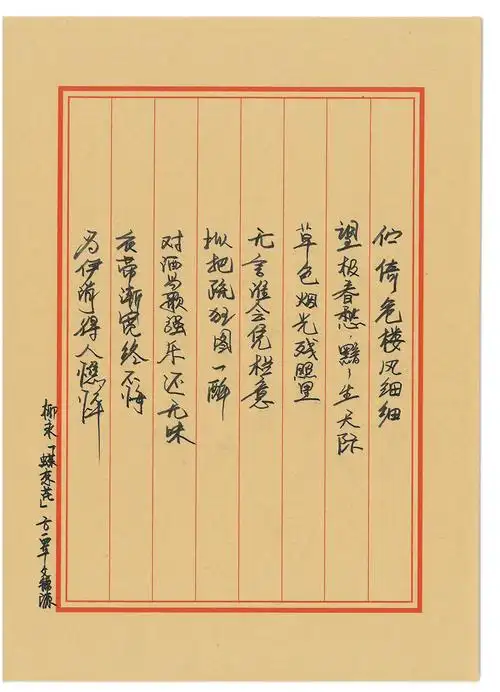 伫倚危楼风细细
望极春愁黯々生天际
草色烟光残照里
无言谁会凭栏意
拟把疏狂图一醉
对酒当歌强乐还无味
衣带渐宽终不悔
为伊消得人憔悴
柳永「蝶恋花」